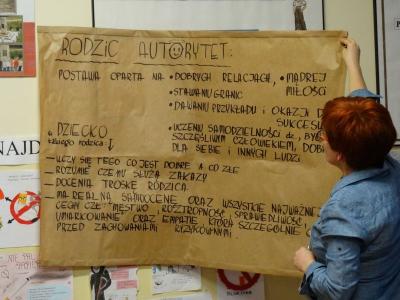 RODZIC AUTORYTET:
POSTAWA OPARTA NA • DOBRYCH RELACJACH, • MĄDREJ MIŁOŚCI
• STAWIANIU GRANIC
• DAWANIU PRZYKŁADU I OKAZJI D SUKCESU
• UCZENIU SAMODZIELNOŚCI
SZCZĘŚLIWYM CZŁOWIEKIEM, DOB
DLA SIEBIE I INNYCH LUDZI
„DZIECKO
takiego rodzica:
— UCZY SIĘ TEGO CO JEST DOBRE A CO ZŁE
— ROZUMIE CZEMU SŁUŻĄ ZAKAZY
— DOCENIA TROSKĘ RODZICA
— MA REALNĄ SAMOOCENĘ ORAZ WSZYSTKIE NAJWAŻNIE
CECHY CZŁ. MĘSTWO, ROZTROPNOŚĆ, SPRAWIEDLIWOŚĆ
UMIARKOWANIE ORAZ EMPATIĘ KTÓRA SZCZEGÓLNIE
PRZED ZACHOWANIAMI RYZYKOWNYMI
NAJD